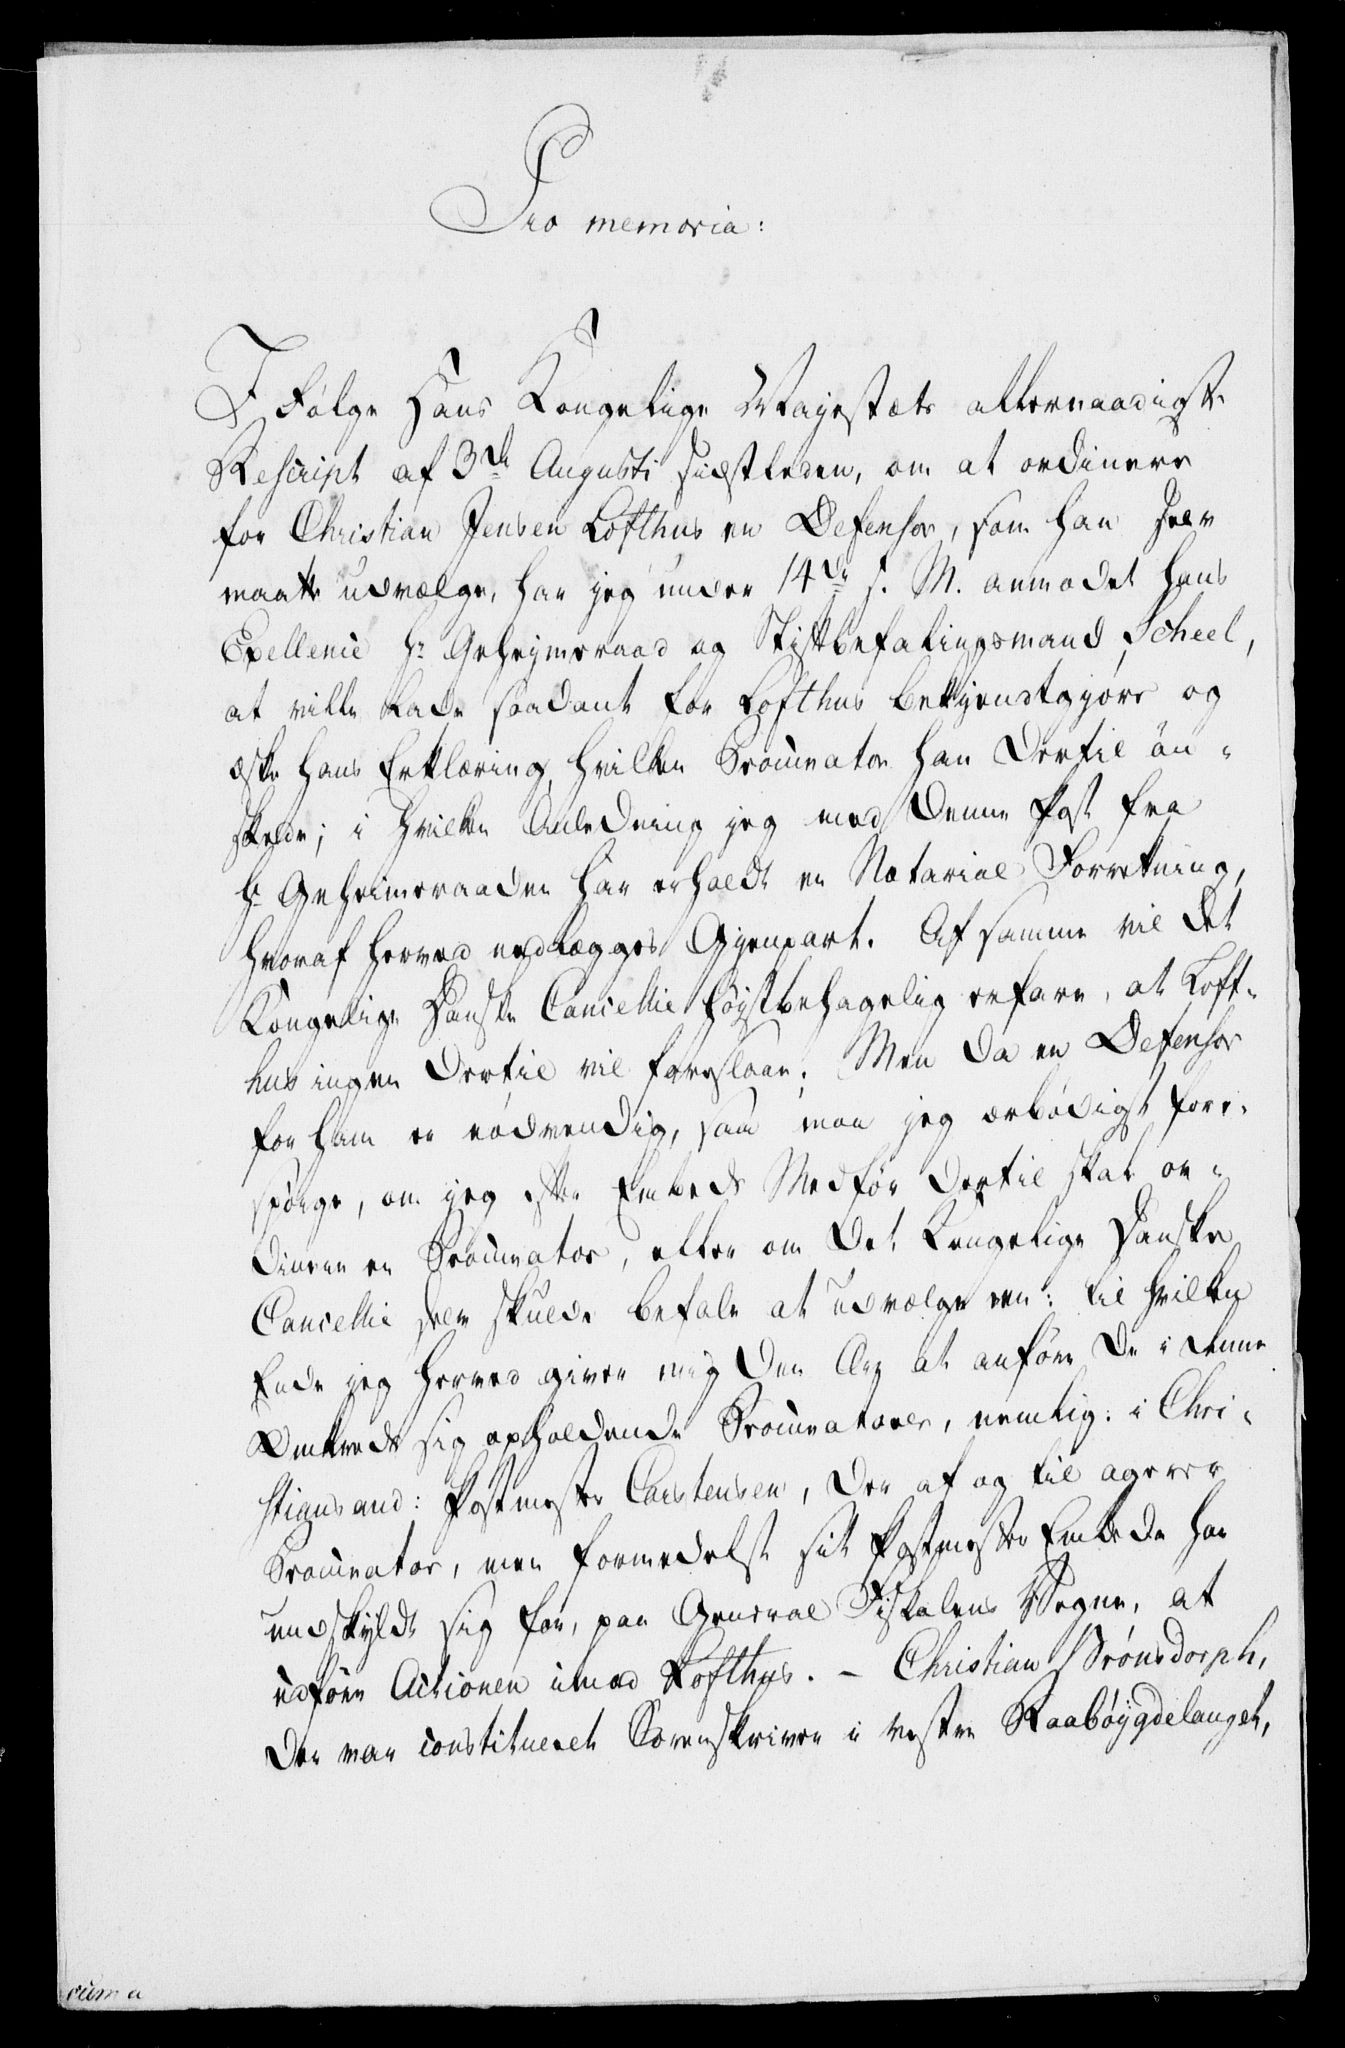 Pro memoria:
I Følge Hans Kongelige Majestæts allernaadigste
Rescript af 3de Augusti sidstleden, om at ordinere
for Christian Jensen Lofthus en Defensor, som han selv
maatte udvælge, har jeg under 14de s. M. anmodet Hans
Exellence Hr Geheimeraad og Stiftbefalingsmand Scheel,
at ville lade saadant for Lofthus bekjendtgjøre og
æske hans Erklæring, hvilken Procurator han dertil øn-
skede; i hvilken Anledning jeg med denne Post fra
Hr Geheimeraaden har erholdt en Notarial Forretning,
hvoraf herved vedlægges Gjenpart. Af samme vil det
Kongelige Danske Cancellie høystbehagelig erfare, at Loft-
hus ingen dertil vil foreslaae. Men da en Defensor
for ham er nødvendig, saa maa jeg ærbødigst fore-
spørge, om jeg efter Embeds Medfør dertil skal or-
dinere en Procurator, eller om det Kongelige Danske
Cancellie selv skulde befale at udvælge een: til hvilken
Ende jeg herved giver mig den Ære at anføre de i denne
Omkreds sig opholdende Procuratorer, nemlig: i Chri-
stiansand: Postmester Carstensen, der af og til agerer
Procurator, men formedelst sit Postmester Embede har
undskyldt sig for, paa General Fiskalens Vegne, at
udføre Actionen imod Lofthus. - Christian Brønsdorph,
der var constitueret Sorenskriver i vestre Raabøygdelauget,
cum a